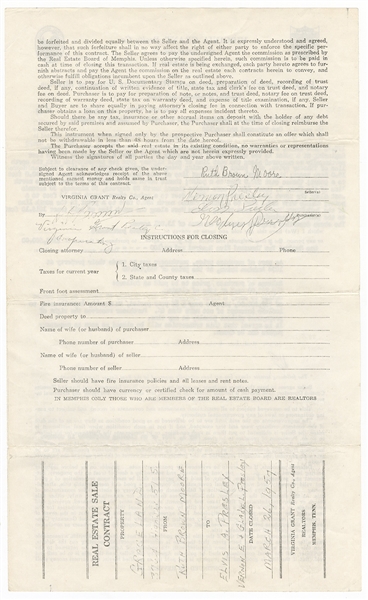 be forfeited and divided equally between the Seller and the Agent. It is expressly understood and agreed,
however, that such forfeiture shall in no way affect the right of either party to enforce the specific per-
formance of this contract. The Seller agrees to pay the undersigned Agent the commission as prescribed by
the Real Estate Board of Memphis. Unless otherwise specified herein, such commission is to be paid in
cash at time of closing this transaction. If real estate is being exchanged, each party hereto agrees to fur-
nish abstracts and pay the Agent the commission on the real estate such contracts herein to convey, and
otherwise fulfill obligations incumbent upon the Seller as outlined above.
Seller is to pay for U. S. Documentary Stamps on deed, preparation of deed, recording of trust
deed, if any, continuation of written evidence of title, state tax and clerk's fee on trust deed, and notary
fee on deed. Purchaser is to pay for preparation of note, or notes, and trust deed, notary fee on trust deed,
recording of warranty deed, state tax on warranty deed, and expense of title examination, if any. Seller
and Buyer are to share equally in paying attorney's closing fee in connection with transaction. If pur-
chaser obtains a loan on this property he is to pay all expenses incident thereto.
Should there be any tax, insurance or other accrued items on deposit with the holder of any debt
secured by said premises and assumed by Purchaser, the Purchaser shall at the time of closing reimburse the
Seller therefor.
This instrument when signed only by the prospective Purchaser shall constitute an offer which shall
not be withdrawable in less than 48 hours from the date hereof.
The Purchaser accepts the said real estate in its existing condition, no warranties or representations
having been made by the Seller or the Agent which are not herein expressly provided.
Witness the signatures of all parties the day and year above written.
Subject to clearance of any check given, the under-
signed Agent acknowledges receipt of the above
mentioned earnest money and holds same in trust
subject to the terms of this contract.
Ruth Brown Moore
(SELLER)
VIRGINIA GRANT Realty Co., Agent
Vernon Presley
By
Virginia Grant
INSTRUCTIONS FOR CLOSING
Closing attorney Address Phone
Taxes for current year
1. City taxes
2. State and County taxes
Front foot assessment
Fire insurance: Amount $ Agent
Deed property to
Name of wife (or husband) of purchaser
Phone number of purchaser Address
Name of wife (or husband) of seller
Phone number of seller Address
Seller should have fire insurance policies and all leases and rent notes.
Purchaser should have currency or certified check for amount of cash payment.
IN MEMPHIS ONLY THOSE WHO ARE MEMBERS OF THE REAL ESTATE BOARD ARE REALTORS
REAL ESTATE SALE
CONTRACT
PROPERTY
FROM
Ruth Brown Moore
TO
Elvis A. Presley
Vernon E. & Gladys Presley
DATE CLOSED
March 26, 1957
VIRGINIA GRANT Realty Co., Agent
REALTORS
MEMPHIS, TENN.